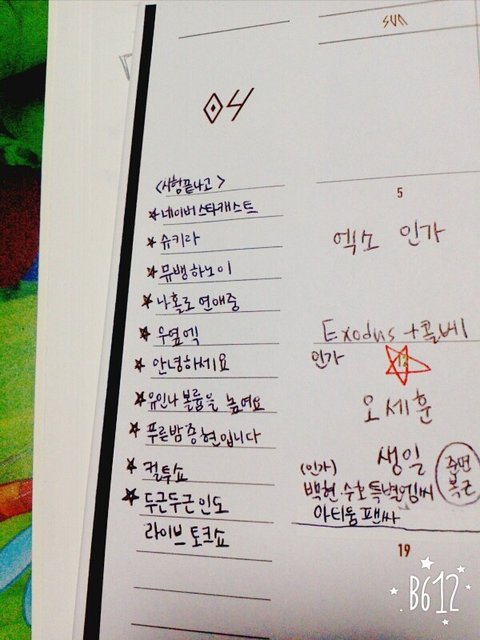 SUN
04
<시험끝나고>
★네이버스타캐스트
★슈키라
★뮤뱅하노이
★나홀로연애중
★우옆엑
★안녕하세요
★유인나 볼륨을 높여요
★푸른밤종현입니다
★컬투쇼
★두근두근인도
라이브토크쇼
5
엑소 인가
Exodus + 콜베
인가
12
오세훈
생일
(인가)
백현·수호 특별엠씨
아티움팬싸
준면
복근
19
B612